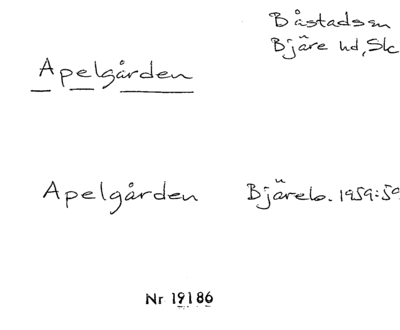 Båstads sn
Bjäre hd, Sk
Apelgården
Apelgården Bjäreb. 1959:50
Nr 19186